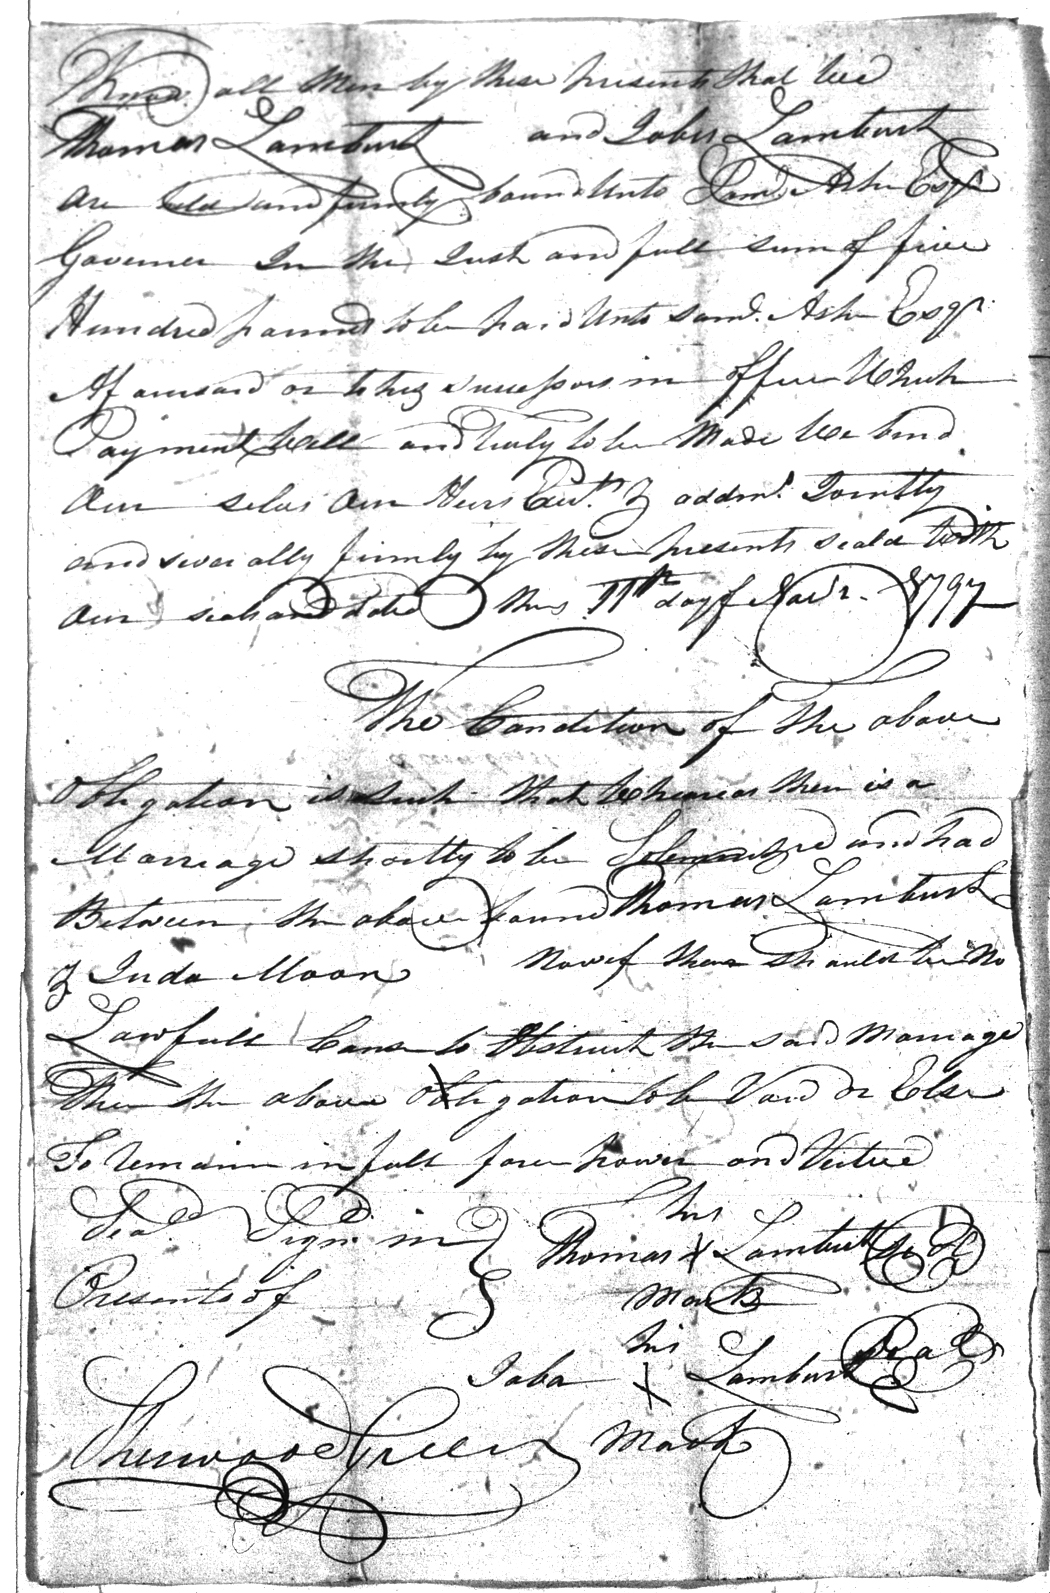 Know all Men by these presents that wee
Thomas Lambert and Jober Lambert
are held and firmly bound Unto Saml. Ashe Esqr
Governer In the Just and full sum of five
Hundred pounds to be paid Unto saml. Ashe Esqr
Aforesaid or to his successors in office Which
Payment Well and truly to be Made We bind
Our selves Our Heirs Exrs. & addmr. Jointly
and severally firmly by these presents seald With
Our seals and dated this 11th day of 1797
The Condition of the above
Obligation is such that Whereas there is a
Marreage shortly to be Solemnized and had
Between the above bound Thomas Lambert
& Juda Moon Now if there should be No
Lawfull Cause to Obstruct the said Marriage
then the above Obligation to be Void or Else
To remain in full force power and Virtue
Seald. Signd. in Thomas his X Lambert Seal
Presents of Mark
Jaba his X Lambert Seal
Sherwood Green Mark